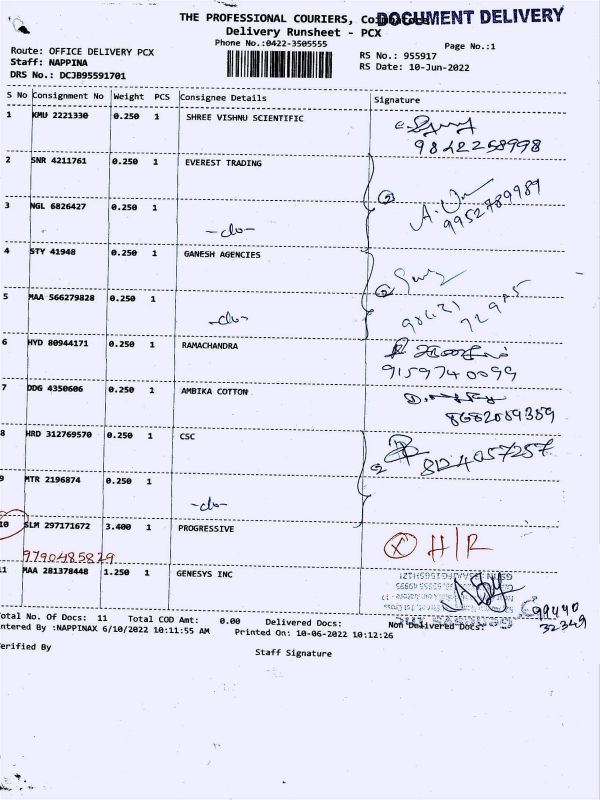 DOCUMENT DELIVERY
THE PROFESSIONAL COURIERS, Coimbatore
Delivery Runsheet - PCX
Phone No.:0422-3505555
Page No.:1
Route: OFFICE DELIVERY PCX
RS No.: 955917
Staff: NAPPINA
RS Date: 10-Jun-2022
DRS No.: DCJB95591701
S No Consignment No Weight PCS Consignee Details Signature
1 KMU 2221330 0.250 1 SHREE VISHNU SCIENTIFIC
9842258998
2 SNR 4211761 0.250 1 EVEREST TRADING
2
9952789989
3 NGL 6826427 0.250 1 -do-
4 STY 41948 0.250 1 GANESH AGENCIES
2
5 MAA 566279828 0.250 1 -do-
6 HYD 80944171 0.250 1 RAMACHANDRA
9159740099
7 DDG 4350606 0.250 1 AMBIKA COTTON
8682089389
8 HRD 312769570 0.250 1 CSC
2 8124057257
9 MTR 2196874 0.250 1 -do-
10 SLM 297171672 3.400 1 PROGRESSIVE
X H/R
9790485829
11 MAA 281378448 1.250 1 GENESYS INC
99440
32349
Total No. Of Docs: 11 Total COD Amt: 0.00 Delivered Docs: Non Delivered Docs:
Entered By :NAPPINAX 6/10/2022 10:11:55 AM Printed On: 10-06-2022 10:12:26
Verified By
Staff Signature